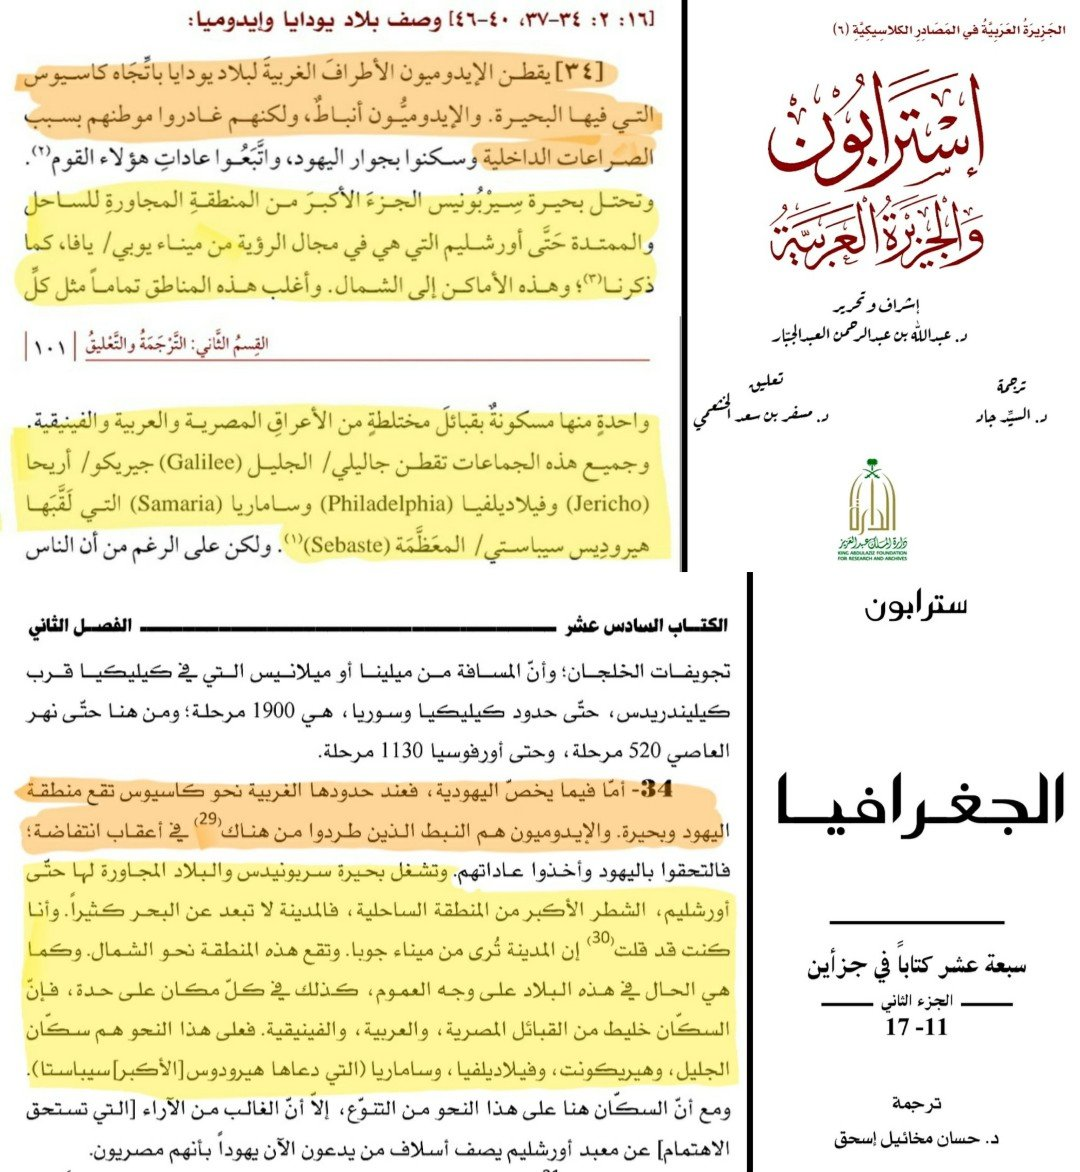 [١٦: ٢: ٣٤-٣٧، ٤٠-٤٦] وصف بلاد يودايا وإيدوميا:
[٣٤] يقطن الإيدوميون الأطرافَ الغربيةَ لبلاد يودايا باتِّجَاه كاسيوس
التي فيها البحيرة. والإيدوميُّون أنباطٌ، ولكنهم غادروا موطنهم بسبب
الصراعات الداخلية وسكنوا بجوار اليهود، واتَّبَعُوا عاداتِ هؤلاء القوم(٢).
وتحتل بحيرة سِيرْبُونيس الجزءَ الأكبرَ من المنطقةِ المجاورةِ للساحل
والممتدة حَتَّى أورشليم التي هي في مجال الرؤية من ميناء يوبي/ يافا، كما
ذكرنا(٣)؛ وهذه الأماكن إلى الشمال. وأغلب هذه المناطق تماماً مثل كلِّ
القِسمُ الثَّاني: التَّرْجَمَةُ والتَّعْليقُ
١٠١
واحدةٍ منها مسكونةٌ بقبائلَ مختلطةٍ من الأعراقِ المصريةِ والعربيةِ والفينيقية.
وجميع هذه الجماعات تقطن جاليلي/ الجليل (Galilee) جيريكو/ أريحا
(Jericho) وفيلاديلفيا (Philadelphia) وساماريا (Samaria) التي لَقَّبَهَا
هيروديس سيباستي/ المعَظَّمَة (Sebaste)(١). ولكن على الرغم من أن الناس
الجَزِيرَةُ العَرَبِيَّةُ في المَصَادِرِ الكلاسِيكِيَّةِ (٦)
إسْتَرَابُون
وَالجَزِيْرَةُ العَرَبِيَّةُ
إشراف وتحرير
د. عبدالله بن عبدالرحمن العبدالجبّار
ترجمة
د. السيِّد جاد
تعليق
د. مسفر بن سعد الخثعمي
الدارة
دارة الملك عبدالعزيز
KING ABDULAZIZ FOUNDATION
FOR RESEARCH AND ARCHIVES
الكتاب السادس عشر
الفصل الثاني
تجويفات الخلجان؛ وأنّ المسافة من ميلينا أو ميلانيس التي في كيليكيا قرب
كيليندريدس، حتّى حدود كيليكيا وسوريا، هي 1900 مرحلة؛ ومن هنا حتّى نهر
العاصي 520 مرحلة، وحتى أورفوسيا 1130 مرحلة.
34- أمّا فيما يخصّ اليهودية، فعند حدودها الغربية نحو كاسيوس تقع منطقة
اليهود وبحيرة. والإيدوميون هم النبط الذين طردوا من هناك(29) في أعقاب انتفاضة؛
فالتحقوا باليهود وأخذوا عاداتهم. وتشغل بحيرة سربونيدس والبلاد المجاورة لها حتّى
أورشليم، الشطر الأكبر من المنطقة الساحلية، فالمدينة لا تبعد عن البحر كثيراً. وأنا
كنت قد قلت(30) إن المدينة تُرى من ميناء جوبا. وتقع هذه المنطقة نحو الشمال. وكما
هي الحال في هذه البلاد على وجه العموم، كذلك في كلّ مكان على حدة، فإنّ
السكّان خليط من القبائل المصرية، والعربية، والفينيقية. فعلى هذا النحو هم سكّان
الجليل، وهيريكونت، وفيلاديلفيا، وساماريا (التي دعاها هيرودوس [الأكبر] سيباستا).
ومع أنّ السكّان هنا على هذا النحو من التنوّع، إلاّ أنّ الغالب من الآراء [التي تستحق
الاهتمام] عن معبد أورشليم يصف أسلاف من يدعون الآن يهوداً بأنهم مصريون.
سترابون
الجغرافيا
سبعة عشر كتاباً في جزأين
الجزء الثاني
11- 17
ترجمة
د. حسان مخائيل إسحق